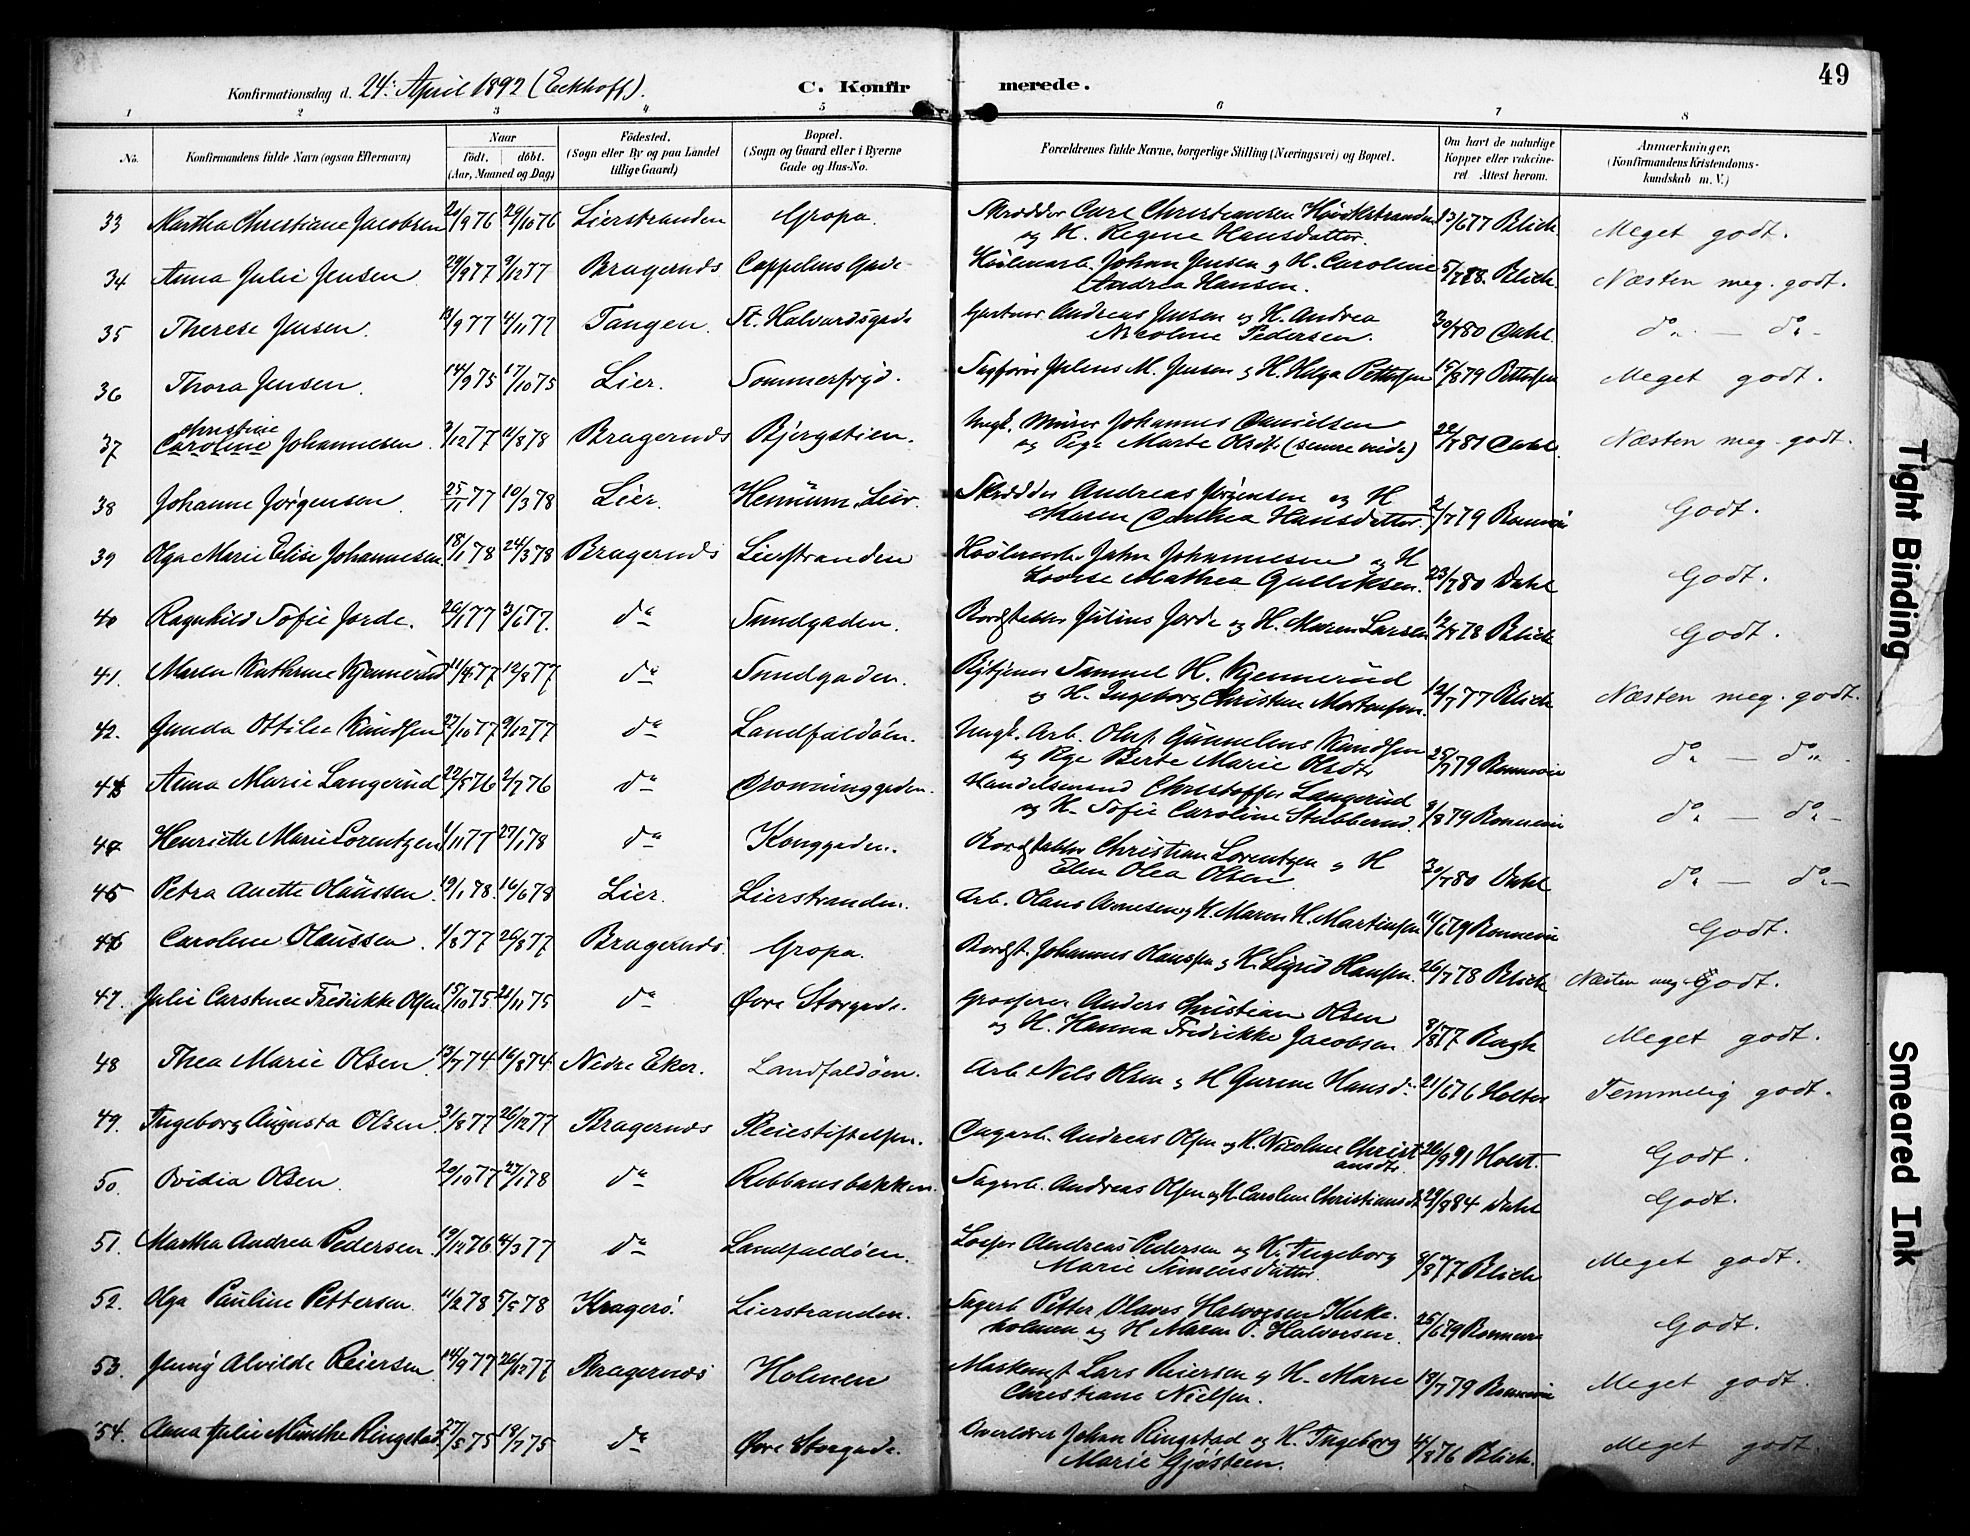 49
Konfirmationsdag d. 24. April 1892 (Eckhoff). C. Konfirmerede.
1 2 3 4 5 6 7 8
No. Konfirmandens fulde Navn (ogsaa Efternavn) Naar födt. döbt. (Aar, Maaned og Dag) Födested. (Sogn eller By og paa Landet tillige Gaard) Bopæl. (Sogn og Gaard eller i Byerne Gade og Hus-No. Forældrenes fulde Navne, borgerlige Stilling (Næringsvei) og Bopæl. Om havt de naturlige Kopper eller vakcineret Attest herom. Anmærkninger. (Konfirmandens Kristendomskundskab m. V.)
33 Martha Christiane Jacobsen 20/9 76 29/10 76 Lierstranden Gropa. Skrædder Carl Christiansen Høvikstranden 13/6 77 Blich. Meget godt.
og H. Regine Hansdatter.
34 Anna Julie Jensen 29/9 77 9/12 77 Bragernds Cappelens Gade Høvlerarb. Johan Jensen og H. Caroline 5/7 78. Blich. Næsten meg. godt.
Andrea Hansen.
35 Therese Jensen. 13/9 77 4/11 77 Tangen. St. Halvardsgade Gartner Andreas Jensen og H. Andrea 30/7 80 Dahl. do — do -
Nicoline Pedersen.
36 Thora Jensen 14/9 75 17/10 75 Lier. Sommerfryd. Sagfører Julius M. Jensen og H. Helga Pettersen 15/8 79 Pettersen Meget godt.
37 Christine
Caroline Johannesen 9/12 77 11/8 78 Bragernds Bjergstien. Ungk. Murer Johannes Danielsen 22/7 81 Dahl. Næsten meg. godt.
og Pige Marte Olsdt. (senere viede)
38 Johanne Jørgensen 25/11 77 10/3 78 Lier. Hennum, Lier. Skrædder Andreas Jørgensen og H 2/7 79 Godt.
Maren Dorthea Hansdatter.
39 Olga Marie Elise Johannesen 18/1 78 24/3 78 Bragernds Lierstranden Johannesen og H 23/7 80 Dahl Godt.
Lovise Mathea Gulliksen.
40 Ragnhild Sofie Jorde. 26/1 77 3/6 77. do Sundgaden. Bordstabler Julius Jorde og H. Maren Larsen 12/7 78 Blich Godt.
41. Maren Kathrine Kjennerud 11/4 77 12/8 77 do Sundgaden. Samuel H. Kjennerud 12/7 77 Blich Næsten meg. godt.
og H. Ingeborg Christine Mortensen.
42. Gunda Ottilie Knudsen 27/10 77 9/12 77 do Landfaldøen. Ungk. Arb. Olaf Knudsen 25/7 79 do — do -
og Pige Berte Marie Olsdt.
43 Anna Marie Langerud 22/5 76 2/7 76 do Dronninggaden. Handelsmand Christoffer Langerud 8/8 79 do — do -
og H. Sofie Caroline Stubberud.
44 Henriette Marie Lorentzen 1/11 77 27/1 78 do Konggaden. Bordstabler Christian Lorentzen og H 30/7 80 Dahl do — do -
Elen Olea Olsen
45 Petra Anette Olaussen 19/1 78. 16/6 78 Lier. Lierstranden. Arb. Olaus Arnesen og H. Maren H. Martinsen 11/6 79 Godt.
46 Caroline Olaussen 1/8 77 26/8 77 Bragernds. Gropa. Bordst. Johannes og H. Sigrid Hansen. 26/7 78 Blich Næsten meg Godt.
47. Julie Carstence Fredrikke Olsen 15/10 75 21/11 75 do Øvre Storgade. Grosserer Anders Christian Olsen 8/8 77 Meget godt.
og H. Hanna Fredrikke Jacobsen
48 Thea Marie Olsen 13/7 74 16/8 74 Nedre Eker. Landfaldøen. Arb. Nels Olsen og H Gurine Hansd. 21/6 76 Holter Temmelig godt.
49. Ingeborg Augusta Olsen 31/8 77 26/12 77 Bragernds Pleiestiftelsen. Andreas Olsen og H. Nicoline Christ 26/9 91 Holst. Godt.
iansdt.
50. Ovidia Olsen 20/10 77 27/1 78 do Ribbansbakken. Sagarb. Andreas Olsen og H. Caroline Christiansdt. 29/8 84 Dahl Godt.
51. Martha Andrea Pedersen 19/12 76 4/3 77 do Landfaldøen. Andreas Pedersen og H. Ingeborg 8/8 77 Blich Meget godt.
Marie Simensdatter.
52. Olga Pauline Pettersen 11/2 78 5/5 78 Kragerö. Lierstranden. Sagarb Petter Olaves Halvorsen Kirke 25/6 79 Godt.
holmen og H Maren P. Halvorsen.
53. Jenny Alvilde Reiersen 14/9 77 26/12 77 Bragernds Holmen Maskinist Lars Reiersen og H. Marie 18/7 79 Meget godt.
Christiane Nielsen.
54. Anna Julie Münthe Ringstad 27/5 75 18/7 75 do Øvre Storgade. Overlærer Johan Ringstad og H. Ingeborg 4/8 76 Blich. Meget godt.
Marie Gjøsteen.
Tight Binding
Smeared Ink